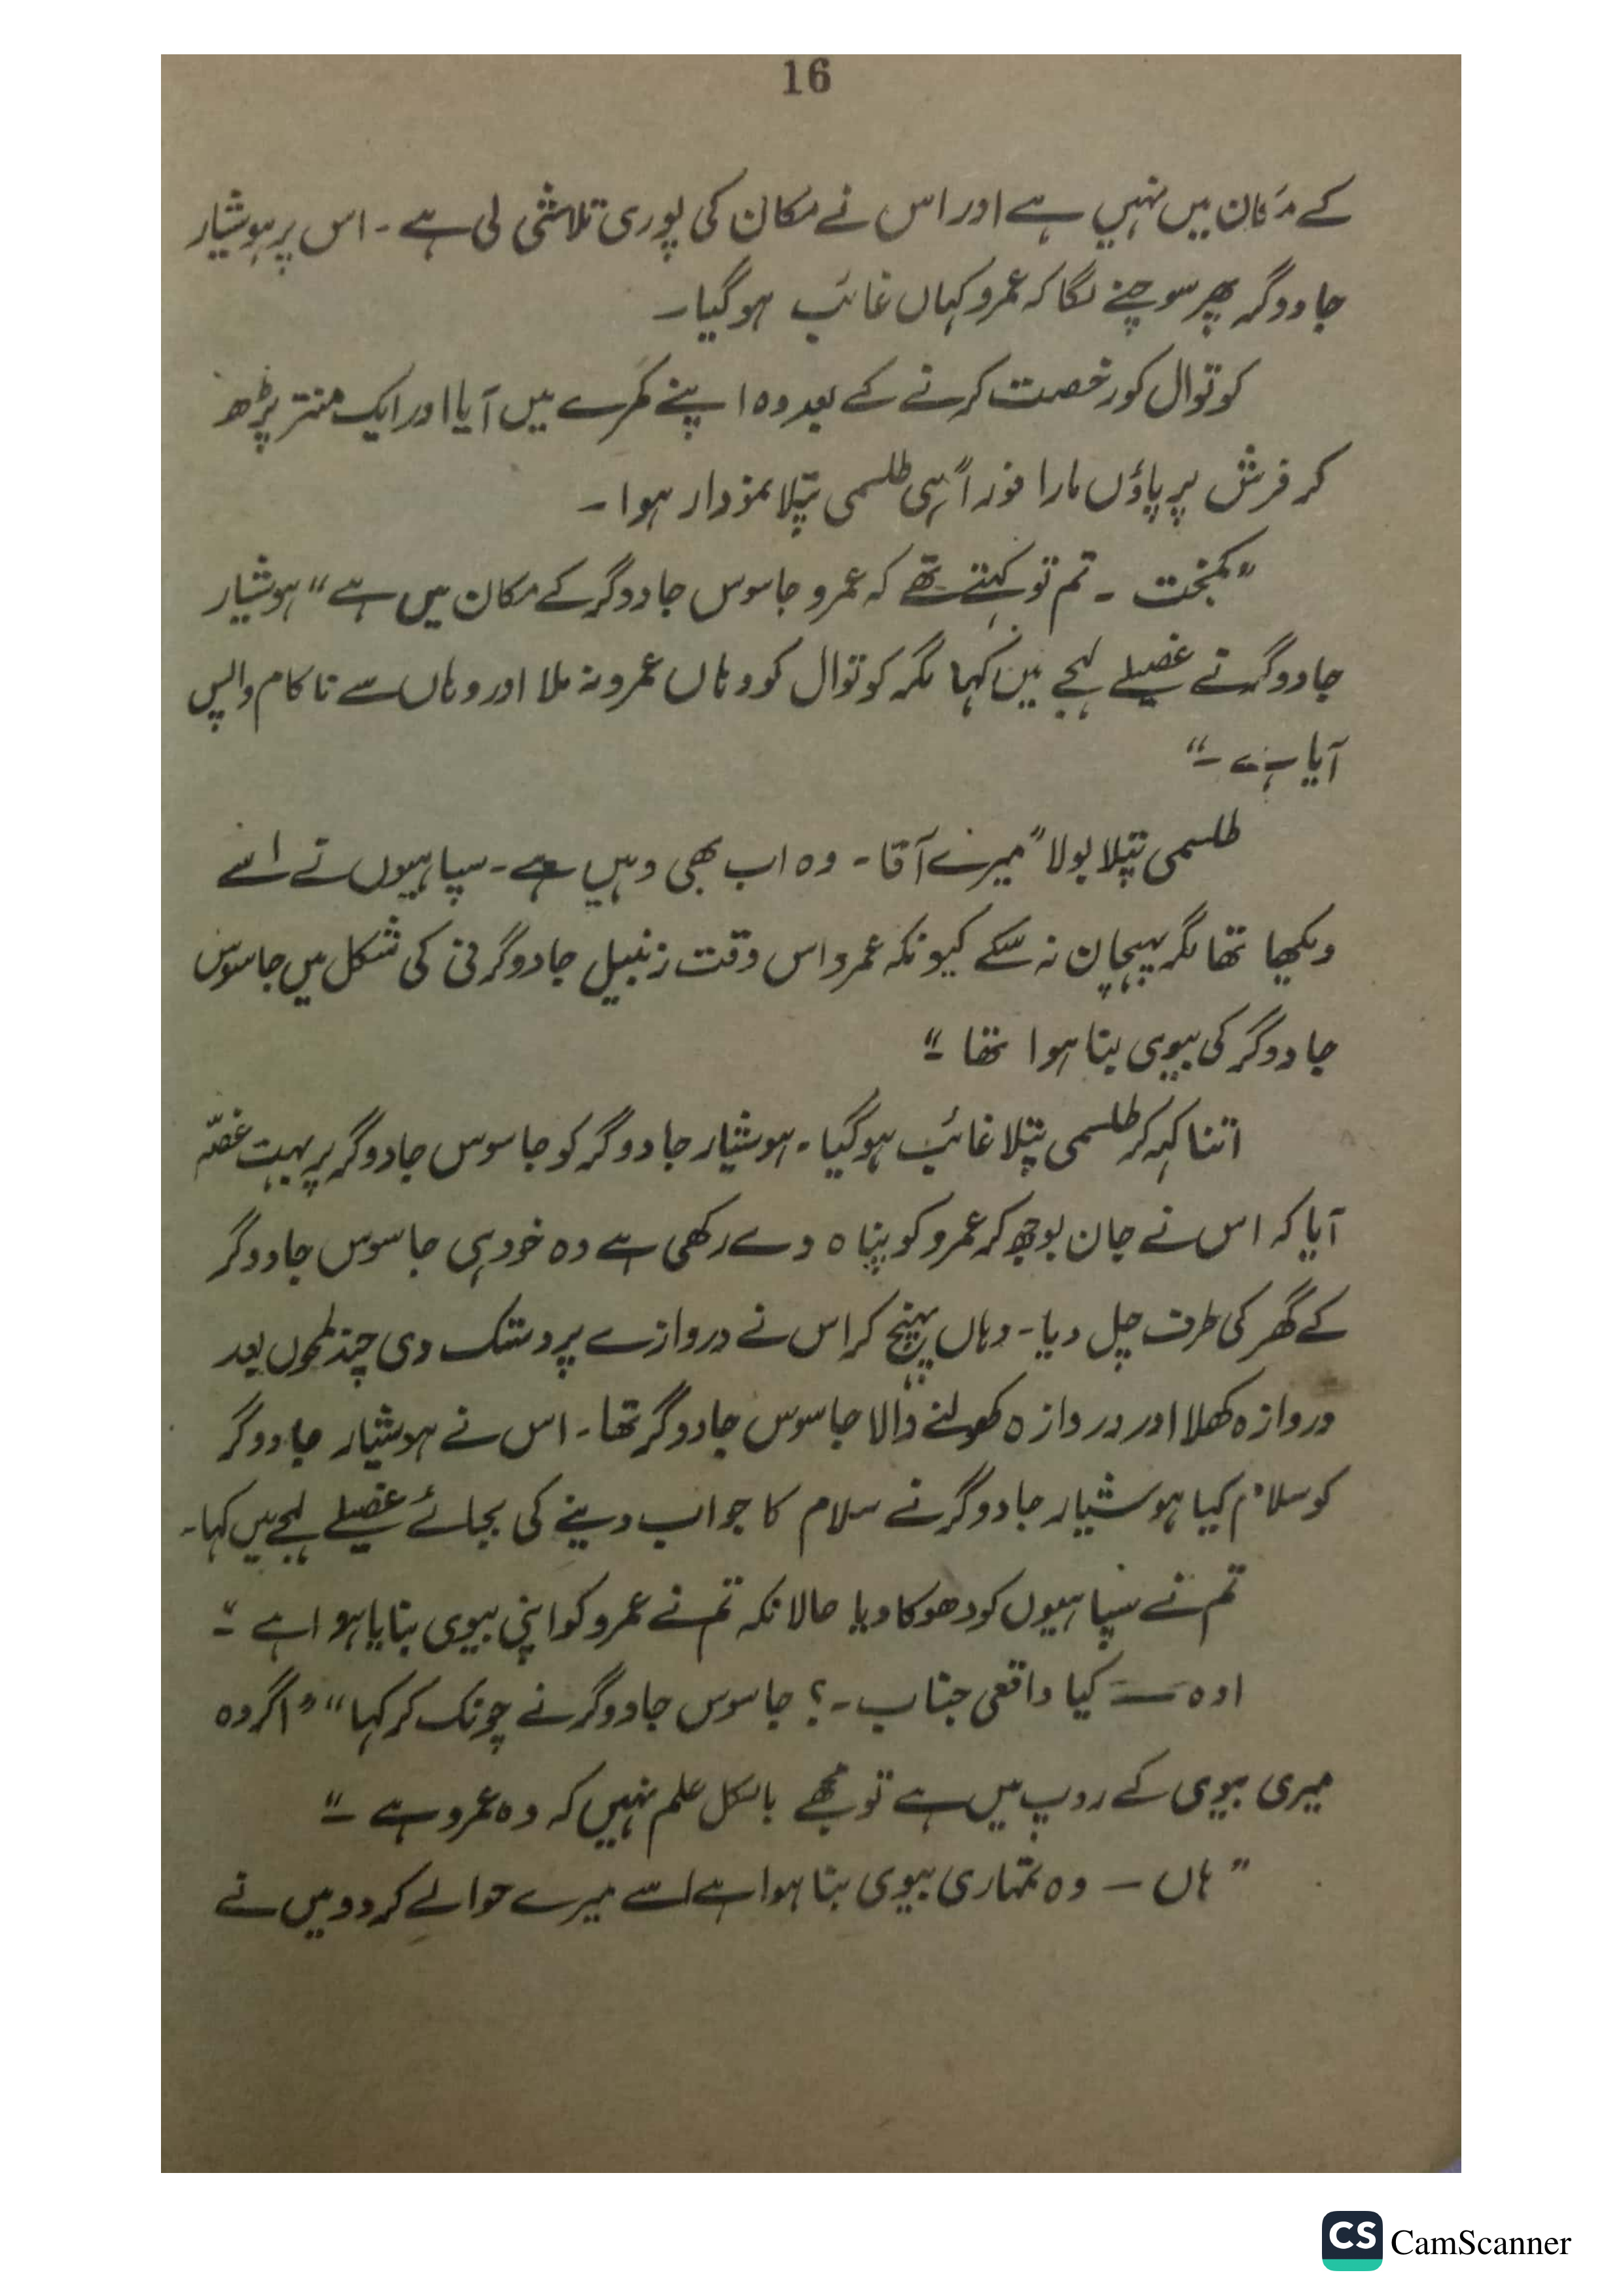 16
کے مکان میں نہیں ہے اور اس نے مکان کی پوری تلاشی لی ہے ۔ اس پر ہوشیار
جادوگر پھر سوچنے لگا کہ عمرو کہاں غائب ہو گیا ۔
کوتوال کو رخصت کرنے کے بعد وہ اپنے کمرے میں آیا اور ایک منتر پڑھ
کر فرش پر پاؤں مارا فوراً ہی طلسمی پتلا نمودار ہوا ۔
”کمبخت ۔ تم تو کہتے تھے کہ عمرو جاسوس جادوگر کے مکان میں ہے“ ہوشیار
جادوگر نے غصیلے لہجے میں کہا مگر کوتوال کو وہاں عمرو نہ ملا اور وہاں سے ناکام واپس
آیا ہے ۔“
طلسمی پتلا بولا ”میرے آقا ۔ وہ اب بھی وہیں ہے ۔ سپاہیوں نے اسے
دیکھا تھا مگر پہچان نہ سکے کیونکہ عمرو اس وقت زنبیل جادوگرنی کی شکل میں جاسوس
جادوگر کی بیوی بنا ہوا تھا ۔“
اتنا کہہ کر طلسمی پتلا غائب ہو گیا ۔ ہوشیار جادوگر کو جاسوس جادوگر پر بہت غصّہ
آیا کہ اس نے جان بوجھ کر عمرو کو پناہ دے رکھی ہے وہ خود ہی جاسوس جادوگر
کے گھر کی طرف چل دیا ۔ وہاں پہنچ کر اس نے دروازے پر دستک دی چند لمحوں بعد
دروازہ کھلا اور دروازہ کھولنے والا جاسوس جادوگر تھا ۔ اس نے ہوشیار جادوگر
کو سلام کیا ہوشیار جادوگر نے سلام کا جواب دینے کی بجائے غصیلے لہجے میں کہا ۔
تم نے سپاہیوں کو دھوکا دیا حالانکہ تم نے عمرو کو اپنی بیوی بنایا ہوا ہے ۔“
اوہ — کیا واقعی جناب ۔؟ جاسوس جادوگر نے چونک کر کہا“ ”اگر وہ
میری بیوی کے روپ میں ہے تو مجھے بالکل علم نہیں کہ وہ عمرو ہے ۔“
”ہاں — وہ تمہاری بیوی بنا ہوا ہے اسے میرے حوالے کر دو میں نے
CS CamScanner